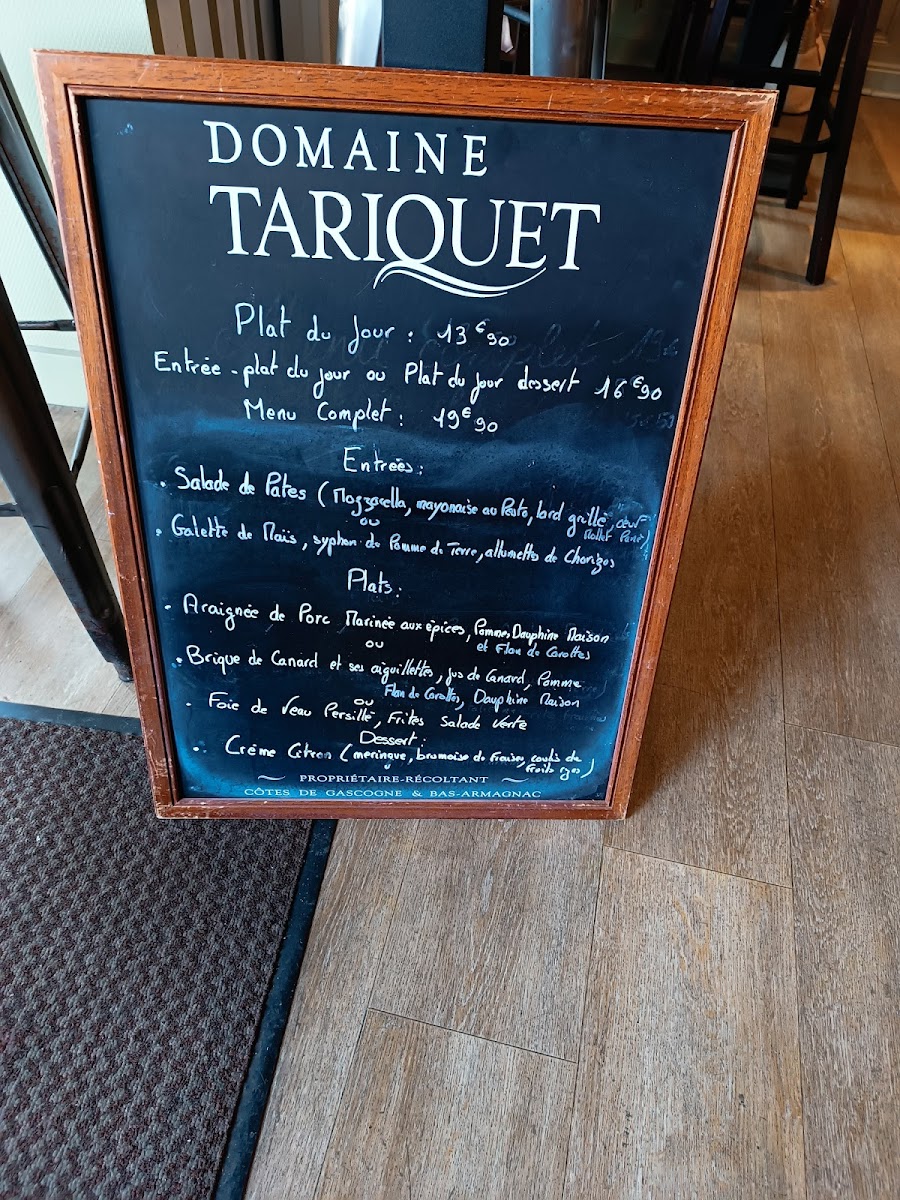 DOMAINE
TARIQUET
Plat du Jour : 13€90
Entrée - plat du jour ou Plat du jour dessert 16€90
Menu Complet : 19€90
Entrées :
• Salade de Pates (Mozzarella, mayonaise au Pesto, lard grillé, oeuf
Mollet Pané)
ou
• Galette de Maïs, syphon de Pomme de Terre, allumettes de Chorizos
Plats :
• Araignée de Porc Marinée aux épices, Pommes Dauphine Maison
et Flan de Carottes
ou
• Brique de Canard et ses aiguillettes, jus de Canard, Pomme
Flan de Carottes, Dauphine Maison
ou
• Foie de Veau Persillé, Frites Salade Verte
Dessert :
• Crème Citron (meringue, brunoise de Fraises, coulis de
Fruits rges)
PROPRIÉTAIRE-RÉCOLTANT
CÔTES DE GASCOGNE & BAS-ARMAGNAC